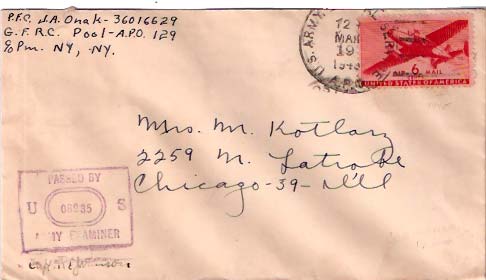 P.F.C. J.A. Onak-36016629
G.F.R.C. Pool-A.P.O. 129
c/o Pm. NY, -NY.
U.S. ARMY
12
MAR
19
194
6
AIR MAIL
UNITED STATES OF AMERICA
Mrs. M. Kotlarz
2259 N.
Chicago-39-Ill
PASSED BY
U S
ARMY EXAMINER